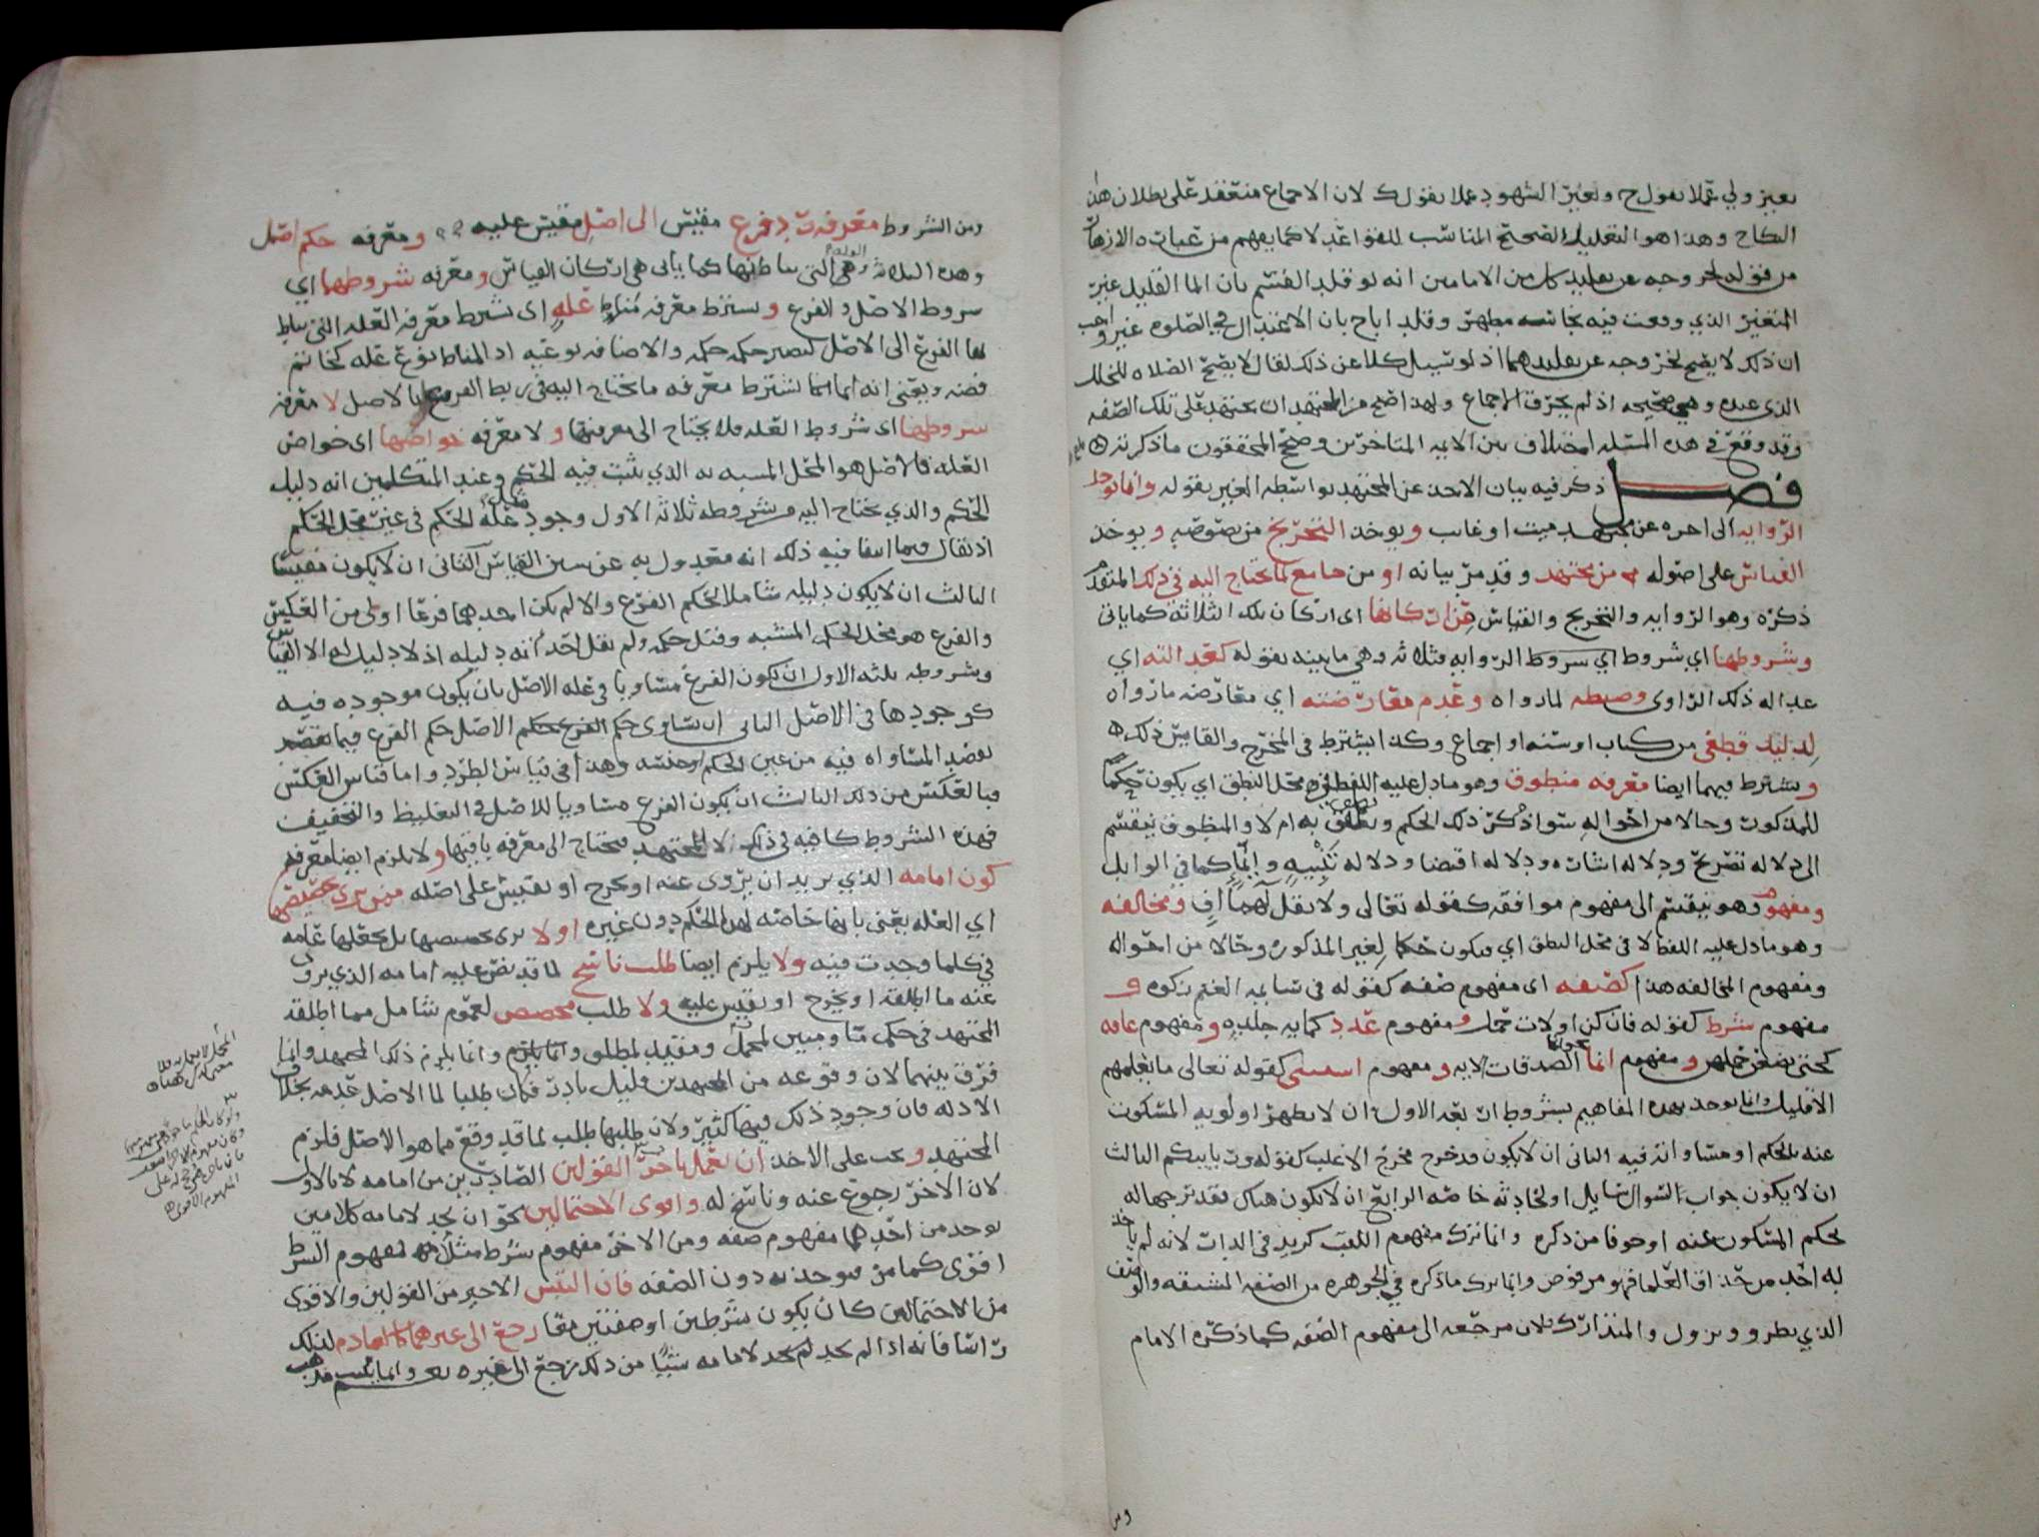 بغير ولي عملا بقول ح وبغير الشهود عملا بقول ك لان الاجماع منعقد على بطلان هذا
النكاح وهذا هو التعليل الصحيح المناسب للقواعد لا كما يفهم من عبارة الازهار
من قوله لخروجه عن تقليد كل من الامامين انه لو قلد القسم بان الما القليل غير
المتغير الذي وقعت فيه نجاسه مطهر وقلد اباح بان الاعتدال في الصلوة غير واجب
ان ذلك لا يصح لخروجه عن تقليدهما اذ لو سيل كلا عن ذلك لقال لا يصح الصلاه للخلل
الذي عنده وهي صحيحه اذ لم يخرق الاجماع ولهذا اصح من المجتهد ان يجتهد على تلك الصفه
وقد وقع في هذه المسئله اختلاف بين الايمه المتاخرين وصحح المحققون ما ذكرته
فصل ذكر فيه بيان الاخذ عن المجتهد بواسطه الغير بقوله وانما توخذ
الروايه الى اخره عن مجتهد ميت او غايب ويوخذ التخريج من نصوصه ويوخذ
القياس على اصوله من مجتهد وقد مر بيانه او من جامع لما يحتاج اليه في ذلك المتقدم
ذكره وهو الروايه والتخريج والقياس من اركانها اى اركان تلك الثلاثة كما ياتي
وشروطها اي شروط اي شروط الروايه فثلاثه وهي ما بينه بقوله كعدالته اي
عداله ذلك الراوى وضبطه لما رواه وعدم معارضته اي معارضه ما رواه
لدليل قطعي من كتاب او سنه او اجماع وكذا يشترط في المخرج والقايس ذلك
ويشترط فيهما ايضا معرفه منطوق وهو ما دل عليه اللفظ في محل النطق اي يكون حكما
للمذكور وحالا من احواله سوا ذكر ذلك الحكم ونطق به ام لا والمنطوق ينقسم
الى دلاله تصريح ودلاله اشاره ودلاله اقتضا ودلاله تنبيه وايما كما في الوابل
ومفهوم وهو ينقسم الى مفهوم موافقه كقوله تعالى ولا تقل لهما اف ومخالفه
وهو ما دل عليه اللفظ لا في محل النطق اي يكون حكما لغير المذكور وحالا من احواله
ومفهوم المخالفه هذا كصفه اى مفهوم صفه كقوله في سايمه الغنم زكوه و
مفهوم شرط كقوله فان كن اولات حمل ومفهوم عدد كمايه جلده ومفهوم غايه
كحتى يضعن حملهن ومفهوم انما نحو انما الصدقات الايه ومفهوم استثنى كقوله تعالى ما يعلمهم
الا قليل وانما يوخذ بهذه المفاهيم بشروط اربعه الاول ان لا يظهر اولويه المسكوت
عنه بالحكم او مساواته فيه الثاني ان لا يكون قد خرج مخرج الاغلب كقوله وربايبكم الثالث
ان لا يكون جواب السوال سايل او لحادثه خاصه الرابع ان لا يكون هناك تقدير جهاله
بحكم المسكوت عنه او خوفا من ذكره وانما ترك مفهوم اللقب كزيد في الدار لانه لم ياخذ
به احد من حذاق العلما فهو مرفوض وانما ترك ما ذكره في الجوهره من الصفه المشبهه والوصف
الذي يطرو ويزول والمتدارك فلان مرجعه الى مفهوم الصفه كما ذكره الامام
ومن
ومن الشروط معرفه رد فرع مقيس الى اصل مقيس عليه ومعرفه حكم اصل
وهذه الثلاثه والعله وهي التي يناط بها كما ياتى هى اركان القياس ومعرفه شروطهما اي
شروط الاصل والفرع ويشترط معرفه مناط عله اى يشترط معرفه العله التي يناط
بها الفرع الى الاصل ليصير حكمه حكمه والاضافه نوعيه اذ المناط نوع عله كخاتم
فضه ويعني انه انما يشترط معرفه ما يحتاج اليه في ربط الفرع بالاصل لا معرفه
شروطها اى شروط العله فلا يحتاج الى معرفتها ولا معرفه خواصها اى خواص
العله فالاصل هو المحل المشبه به الذي يثبت فيه الحكم وعند المتكلمين انه دليل
الحكم والذي يحتاج اليه من شروطه ثلاثه الاول وجود مثل عله الحكم في غير محل الحكم
اذ يقال فيما انتفا فيه ذلك انه معدول به عن سنن القياس الثاني ان لا يكون مقيسا
الثالث ان لا يكون دليله شاملا لحكم الفرع والا لم يكن احدهما فرعا اولى من العكس
والفرع هو محل الحكم المشبه وقيل حكمه ولم يقل احد انه دليله اذ لا دليل له الا القياس
وشروطه ثلثه الاول ان يكون الفرع مساويا في عله الاصل بان يكون موجوده فيه
كوجودها في الاصل الثاني ان يساوى حكم الفرع حكم الاصل فيما يقصد
لقصد المساواه فيه من عين الحكم او جنسه وهذا في قياس الطرد واما قياس العكس
فبالعكس من ذلك الثالث ان يكون الفرع مساويا للاصل في التغليظ والتخفيف
فهذه الشروط كافيه في ذلك لا المجتهد فيحتاج الى معرفه باقيها ولا يلزم ايضا معرفه
كون امامه الذي يريد ان يروى عنه او يخرج او يقيس على اصله ممن يرى تخصيص
اي العله يعني بانها خاصه لهذا الحكم دون غيره او لا يرى تخصيصها بل يجعلها عامه
في كلما وجدت فيه ولا يلزم ايضا طلب ناسخ لما قد نص عليه امامه الذي يروي
عنه ما اطلقه او يخرج او يقيس عليه ولا طلب مخصص لعموم شامل مما اطلقه
المجتهد في حكم ما ومبين لمجمل ومقيد لمطلق وانما يلزم ذلك المجتهد وانما
فرق بينهما لان وقوعه من المجتهدين قليل نادر فكان طلبا لما الاصل عدمه بخلاف
الادله فان وجود ذلك فيها كثير ولان طلبها طلب لما قد وقع مما هو الاصل فلزم
المجتهد ويجب على الاخذ ان يعمل باخر القولين الصادرين من امامه لا بالاول
لان الاخر رجوع عنه وناسخ له واقوى الاحتمالين نحو ان يجد لامامه كلامين
يوخذ من احدهما مفهوم صفه ومن الاخر مفهوم شرط مثلا فمفهوم الشرط
اقوى كما مر فيوخذ به دون الصفه فان التبس الاخير من القولين والاقوى
من الاحتمالين كان يكون شرطين او صفتين معا رجع الى غيرهما كالعادم لذلك
راسا فانه اذا لم يجد لامامه شيئا من ذلك رجع الى غيره